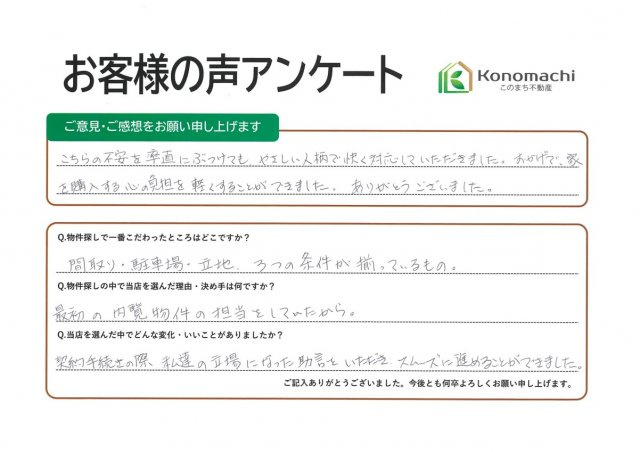 お客様の声アンケート
Konomachi
このまち不動産
ご意見・ご感想をお願い申し上げます
こちらの不安を率直にぶつけても やさしい人柄で快く対応していただきました。おかげで、家
を購入する心の負担を軽くすることができました。 ありがとうございました。
Q.物件探しで一番こだわったところはどこですか?
間取り・駐車場・立地、3つの条件が揃っているもの。
Q.物件探しの中で当店を選んだ理由・決め手は何ですか?
最初の内覧物件の担当をしていたから。
Q.当店を選んだ中でどんな変化・いいことがありましたか?
契約手続きの際、私達の立場になった助言をいただき スムーズに進めることができました。
ご記入ありがとうございました。今後とも何卒よろしくお願い申し上げます。